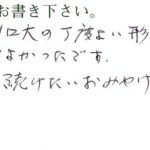 お書き下さい。
口大の丁度よい形
よかったです。
続けたいおみやげ